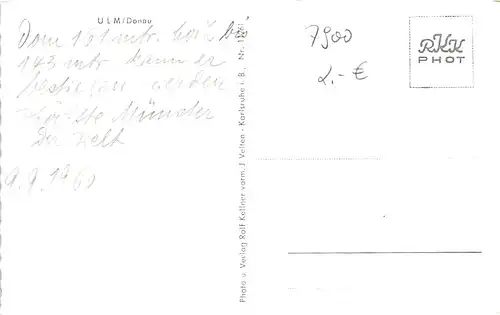 ULM/Donau
Dom 161 mtr. hoch bis
143 mtr kann er
bestiegen werden
Münster
der Welt
9.9.1960
Photo u. Verlag Ralf Kellner vorm. J. Velten - Karlsruhe i. B. Nr.
7900
2.-€
RKK
PHOT